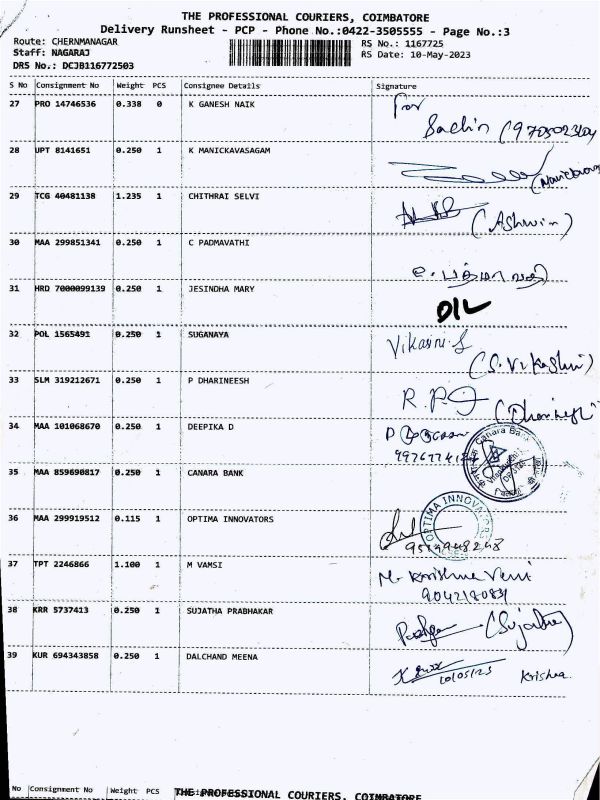 THE PROFESSIONAL COURIERS, COIMBATORE
Delivery Runsheet - PCP - Phone No.:0422-3505555 - Page No.:3
Route: CHERNMANAGAR
RS No.: 1167725
Staff: NAGARAJ
RS Date: 10-May-2023
DRS No.: DCJB116772503
S No Consignment No Weight PCS Consignee Details Signature
27 PRO 14746536 0.338 0 K GANESH NAIK
For
Sachin
28 UPT 8141651 0.250 1 K MANICKAVASAGAM
29 TCG 40481138 1.235 1 CHITHRAI SELVI
(Ashwin)
30 MAA 299851341 0.250 1 C PADMAVATHI
31 HRD 7000099139 0.250 1 JESINDHA MARY
D/L
32 POL 1565491 0.250 1 SUGANAYA
Vikasni.S
(S.Vikashni)
33 SLM 319212671 0.250 1 P DHARINEESH
R.P.
34 MAA 101068670 0.250 1 DEEPIKA D
Canara Bank
35 MAA 859690817 0.250 1 CANARA BANK
36 MAA 299919512 0.115 1 OPTIMA INNOVATORS
OPTIMA INNOVATORS
37 TPT 2246866 1.100 1 M VAMSI
M. Krishna Veni
38 KRR 5737413 0.250 1 SUJATHA PRABHAKAR
(Sujatha)
39 KUR 694343858 0.250 1 DALCHAND MEENA
10/05/23 Krishna
No Consignment No Weight PCS
THE PROFESSIONAL COURIERS, COIMBATORE